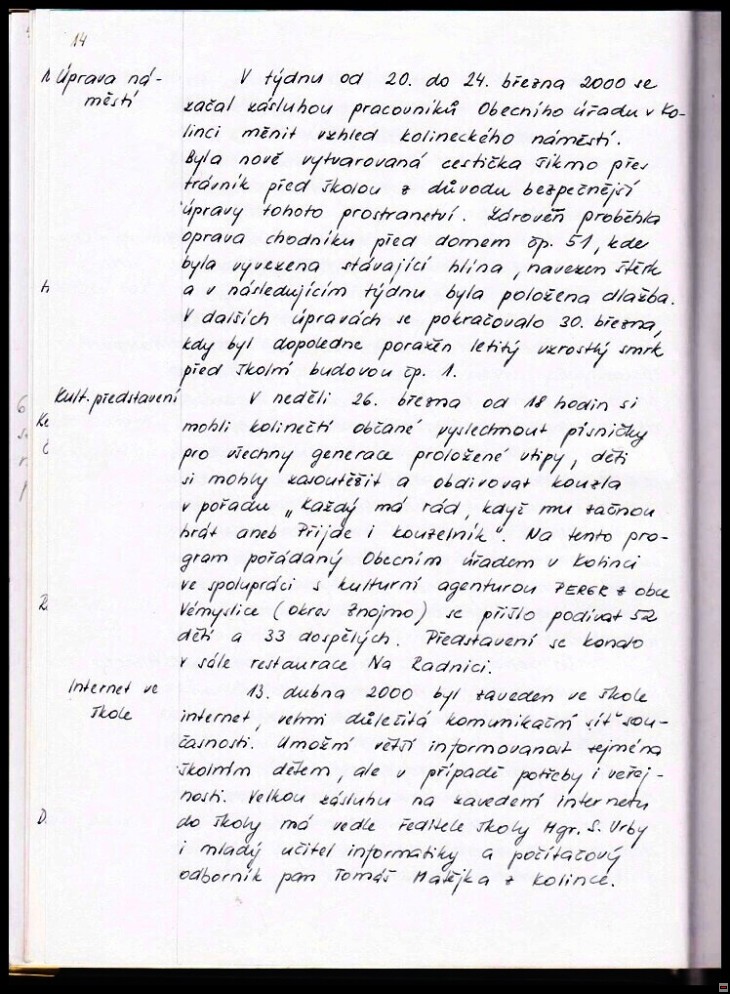 14
Úprava ná-
městí
V týdnu od 20. do 24. března 2000 se
začal zásluhou pracovníků Obecního úřadu v Ko-
linci měnit vzhled kolineckého náměstí.
Byla nově vytvarovaná cestička šikmo přes
trávník před školou z důvodu bezpečnější
úpravy tohoto prostranství. Zároveň proběhla
oprava chodníku před domem čp. 51, kde
byla vyvezena stávající hlína, navezen štěrk
a v následujícím týdnu byla položena dlažba.
V dalších úpravách se pokračovalo 30. března,
kdy byl dopoledne poražen letitý vzrostlý smrk
před školní budovou čp. 1.
Kult. představení
V neděli 26. března od 18 hodin si
mohli kolinečtí občané vyslechnout písničky
pro všechny generace proložené vtipy, děti
si mohly zasoutěžit a obdivovat kouzla
v pořadu „Každý má rád, když mu začnou
hrát aneb Přijde i kouzelník". Na tento pro-
gram pořádaný Obecním úřadem v Kolinci
ve spolupráci s kulturní agenturou PEREK z obce
Vémyslice (okres Znojmo) se přišlo podívat 52
dětí a 33 dospělých. Představení se konalo
v sále restaurace Na Radnici.
Internet ve
škole
13. dubna 2000 byl zaveden ve škole
internet, velmi důležitá komunikační síť sou-
časnosti. Umožní větší informovanost zejména
školním dětem, ale v případě potřeby i veřej-
nosti. Velkou zásluhu na zavedení internetu
do školy má vedle ředitele školy Mgr. S. Urby
i mladý učitel informatiky a počítačový
odborník pan Tomáš Matějka z Kolince.